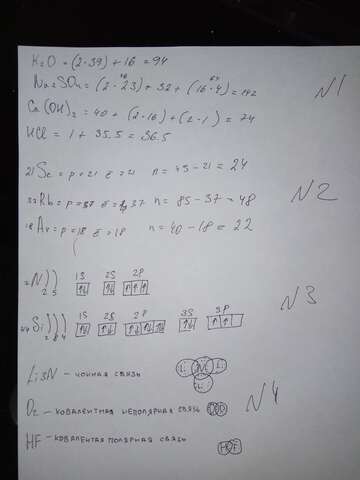 K2O = (2·39) + 16 = 94
Na2SO4 = (2·23) + 32 + (16·4) = 142
46 64
Ca(OH)2 = 40 + (2·16) + (2·1) = 74
HCl = 1 + 35.5 = 36.5
N1
21Sc = p=21 ē=21 n = 45 - 21 = 24
37Rb = p=37 ē=37 n = 85 - 37 = 48
18Ar = p=18 ē=18 n = 40 - 18 = 22
N2
N))
2 5
1S 2S 2P
↑↓ ↑↓ ↑ ↑ ↑
Si)))
2 8 4
1S 2S 2P 3S 3P
↑↓ ↑↓ ↑↓ ↑↓ ↑↓ ↑↓ ↑ ↑
N3
Li3N - ионная связь
Li N Li
Li
O2 - ковалентная неполярная связь O O
HF - ковалентая полярная связь H F
N4